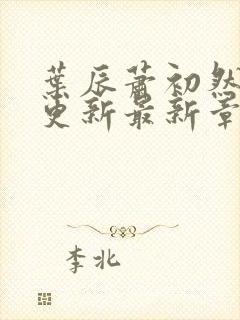 葉辰蕭初然
更新最新章
李北